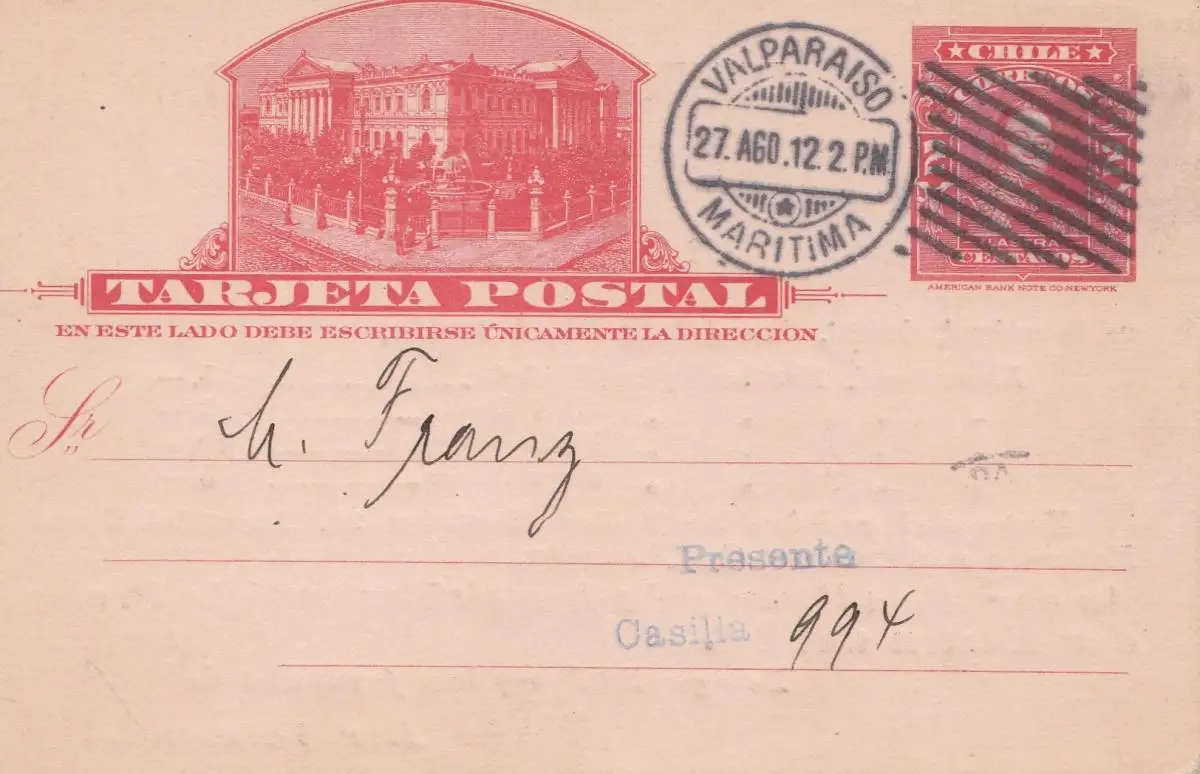 CHILE
CORREOS
VALPARAISO
27. AGO .12 2. P.M.
MARITIMA
CENTAVOS
AMERICAN BANK NOTE CO·NEWYORK
TARJETA POSTAL
EN ESTE LADO DEBE ESCRIBIRSE ÚNICAMENTE LA DIRECCION
Sr
M. Franz
Presente
Casilla 994